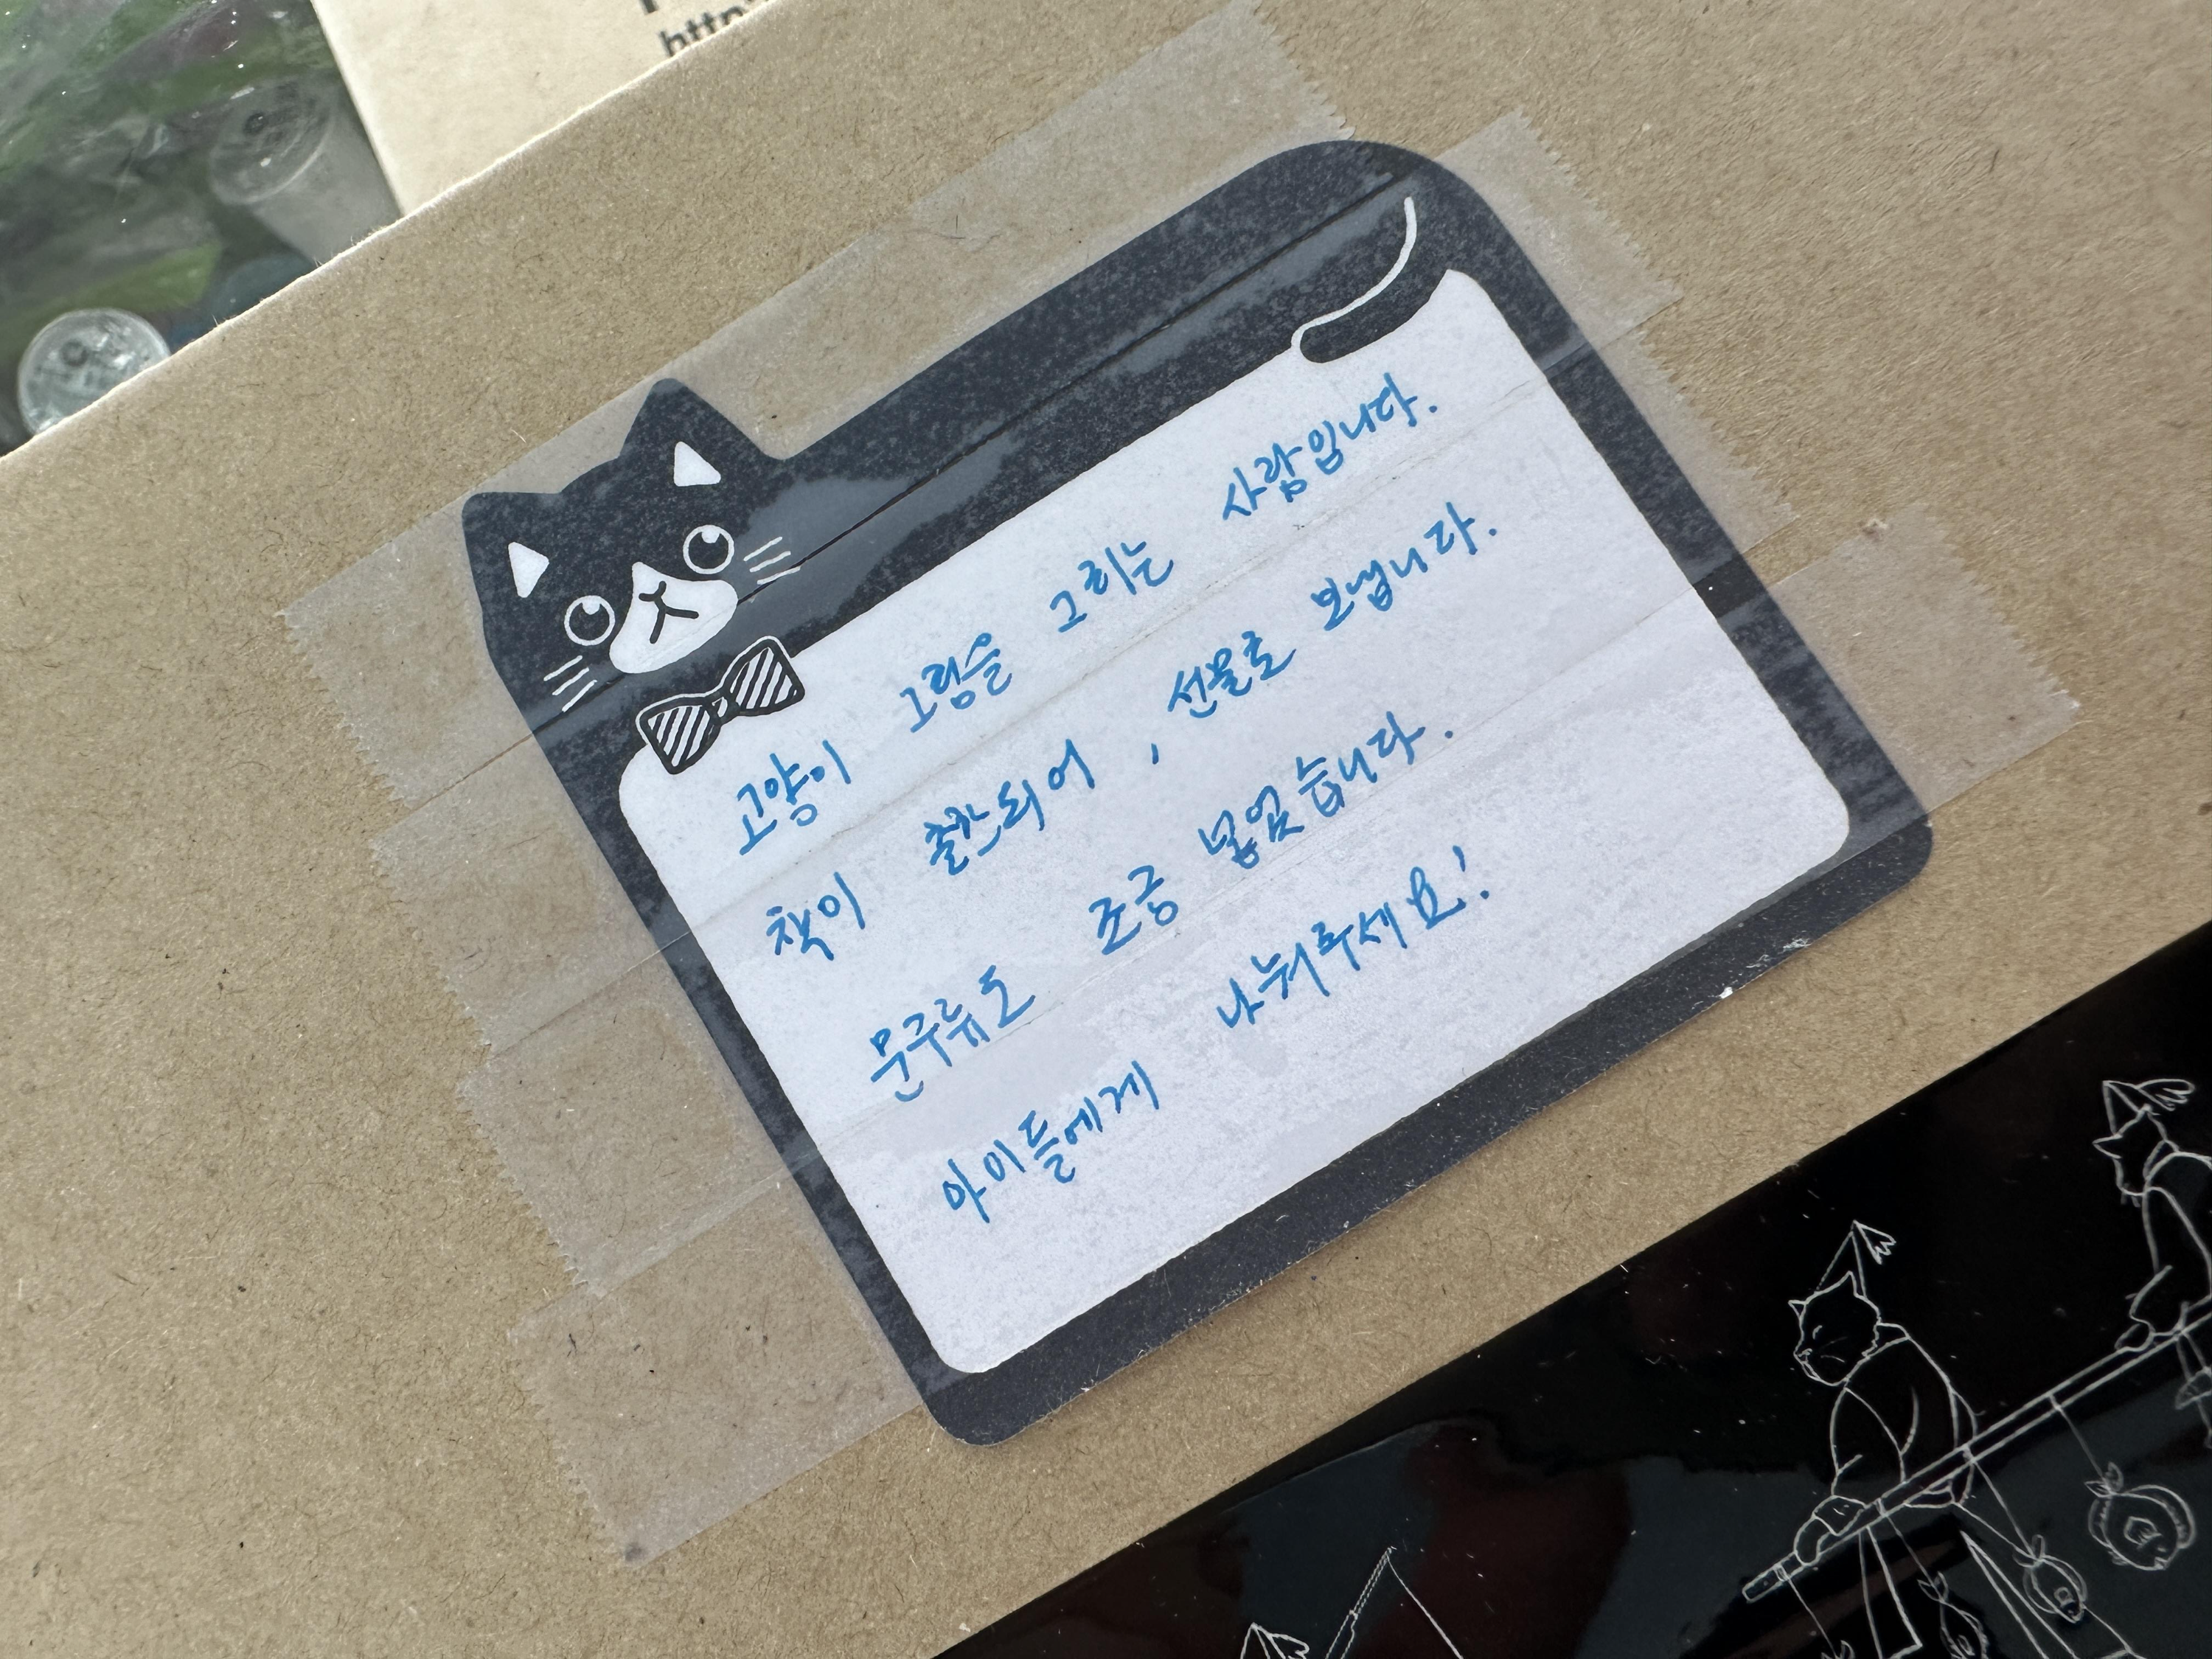 http
고양이 그림을 그리는 사람입니다.
책이 출간되어, 선물로 보냅니다.
문구류도 조금 넣었습니다.
아이들에게 나눠주세요!